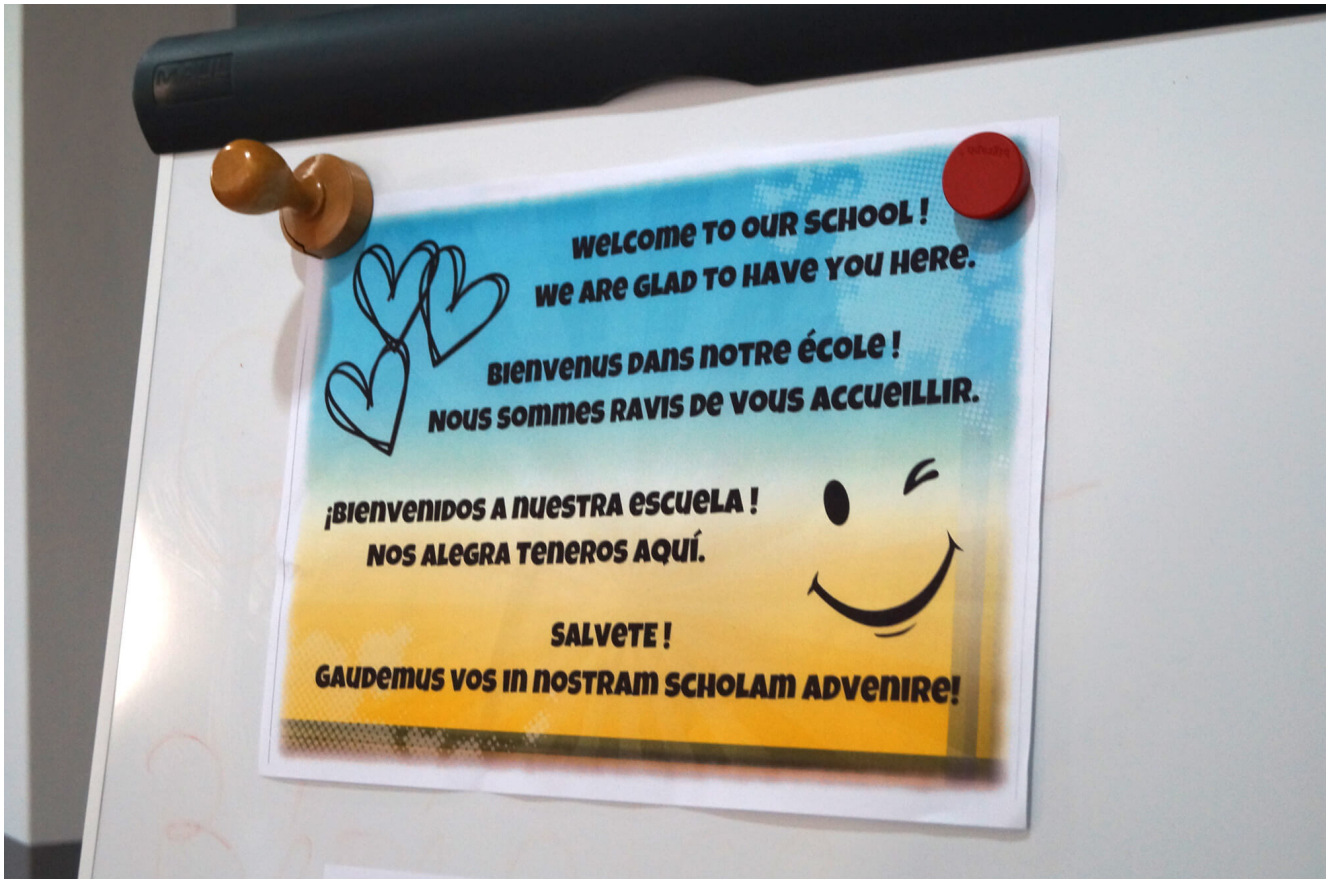 WELCOME TO OUR SCHOOL !
WE ARE GLAD TO HAVE YOU HERE.
BIENVENUS DANS NOTRE ÉCOLE !
NOUS SOMMES RAVIS DE VOUS ACCUEILLIR.
¡BIENVENIDOS A NUESTRA ESCUELA !
NOS ALEGRA TENEROS AQUÍ.
SALVETE !
GAUDEMUS VOS IN NOSTRAM SCHOLAM ADVENIRE!